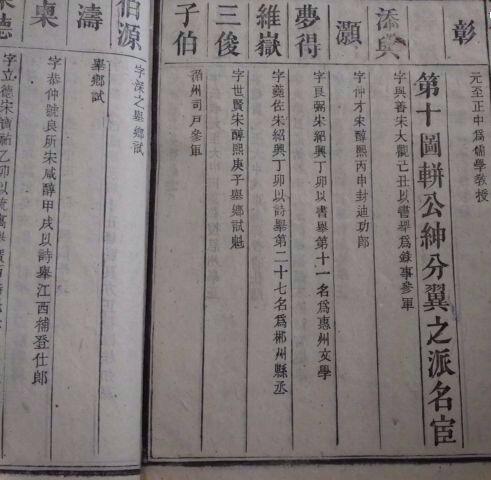 彰
元至正中為儒學教授
第十圖輧公紳分翼之派名宦
添與
字與善宋大觀亡丑以書舉為錄事參軍
灝
字仲才宋醇熙丙申封迪功郎
夢得
字良弼宋紹興丁卯以書舉第十一名為惠州文學
維嶽
字佐宋紹興丁卯以詩舉第二十七名為郴州縣丞
三俊
字世賢宋醇熙庚子舉鄉試魁
子伯
循州司戶參軍
伯源
字深之舉鄉試
濤
舉鄉試
稟
字恭仲號良所宋咸醇甲戌以詩舉江西補登仕郎
德
字立德宋寶祐乙卯以